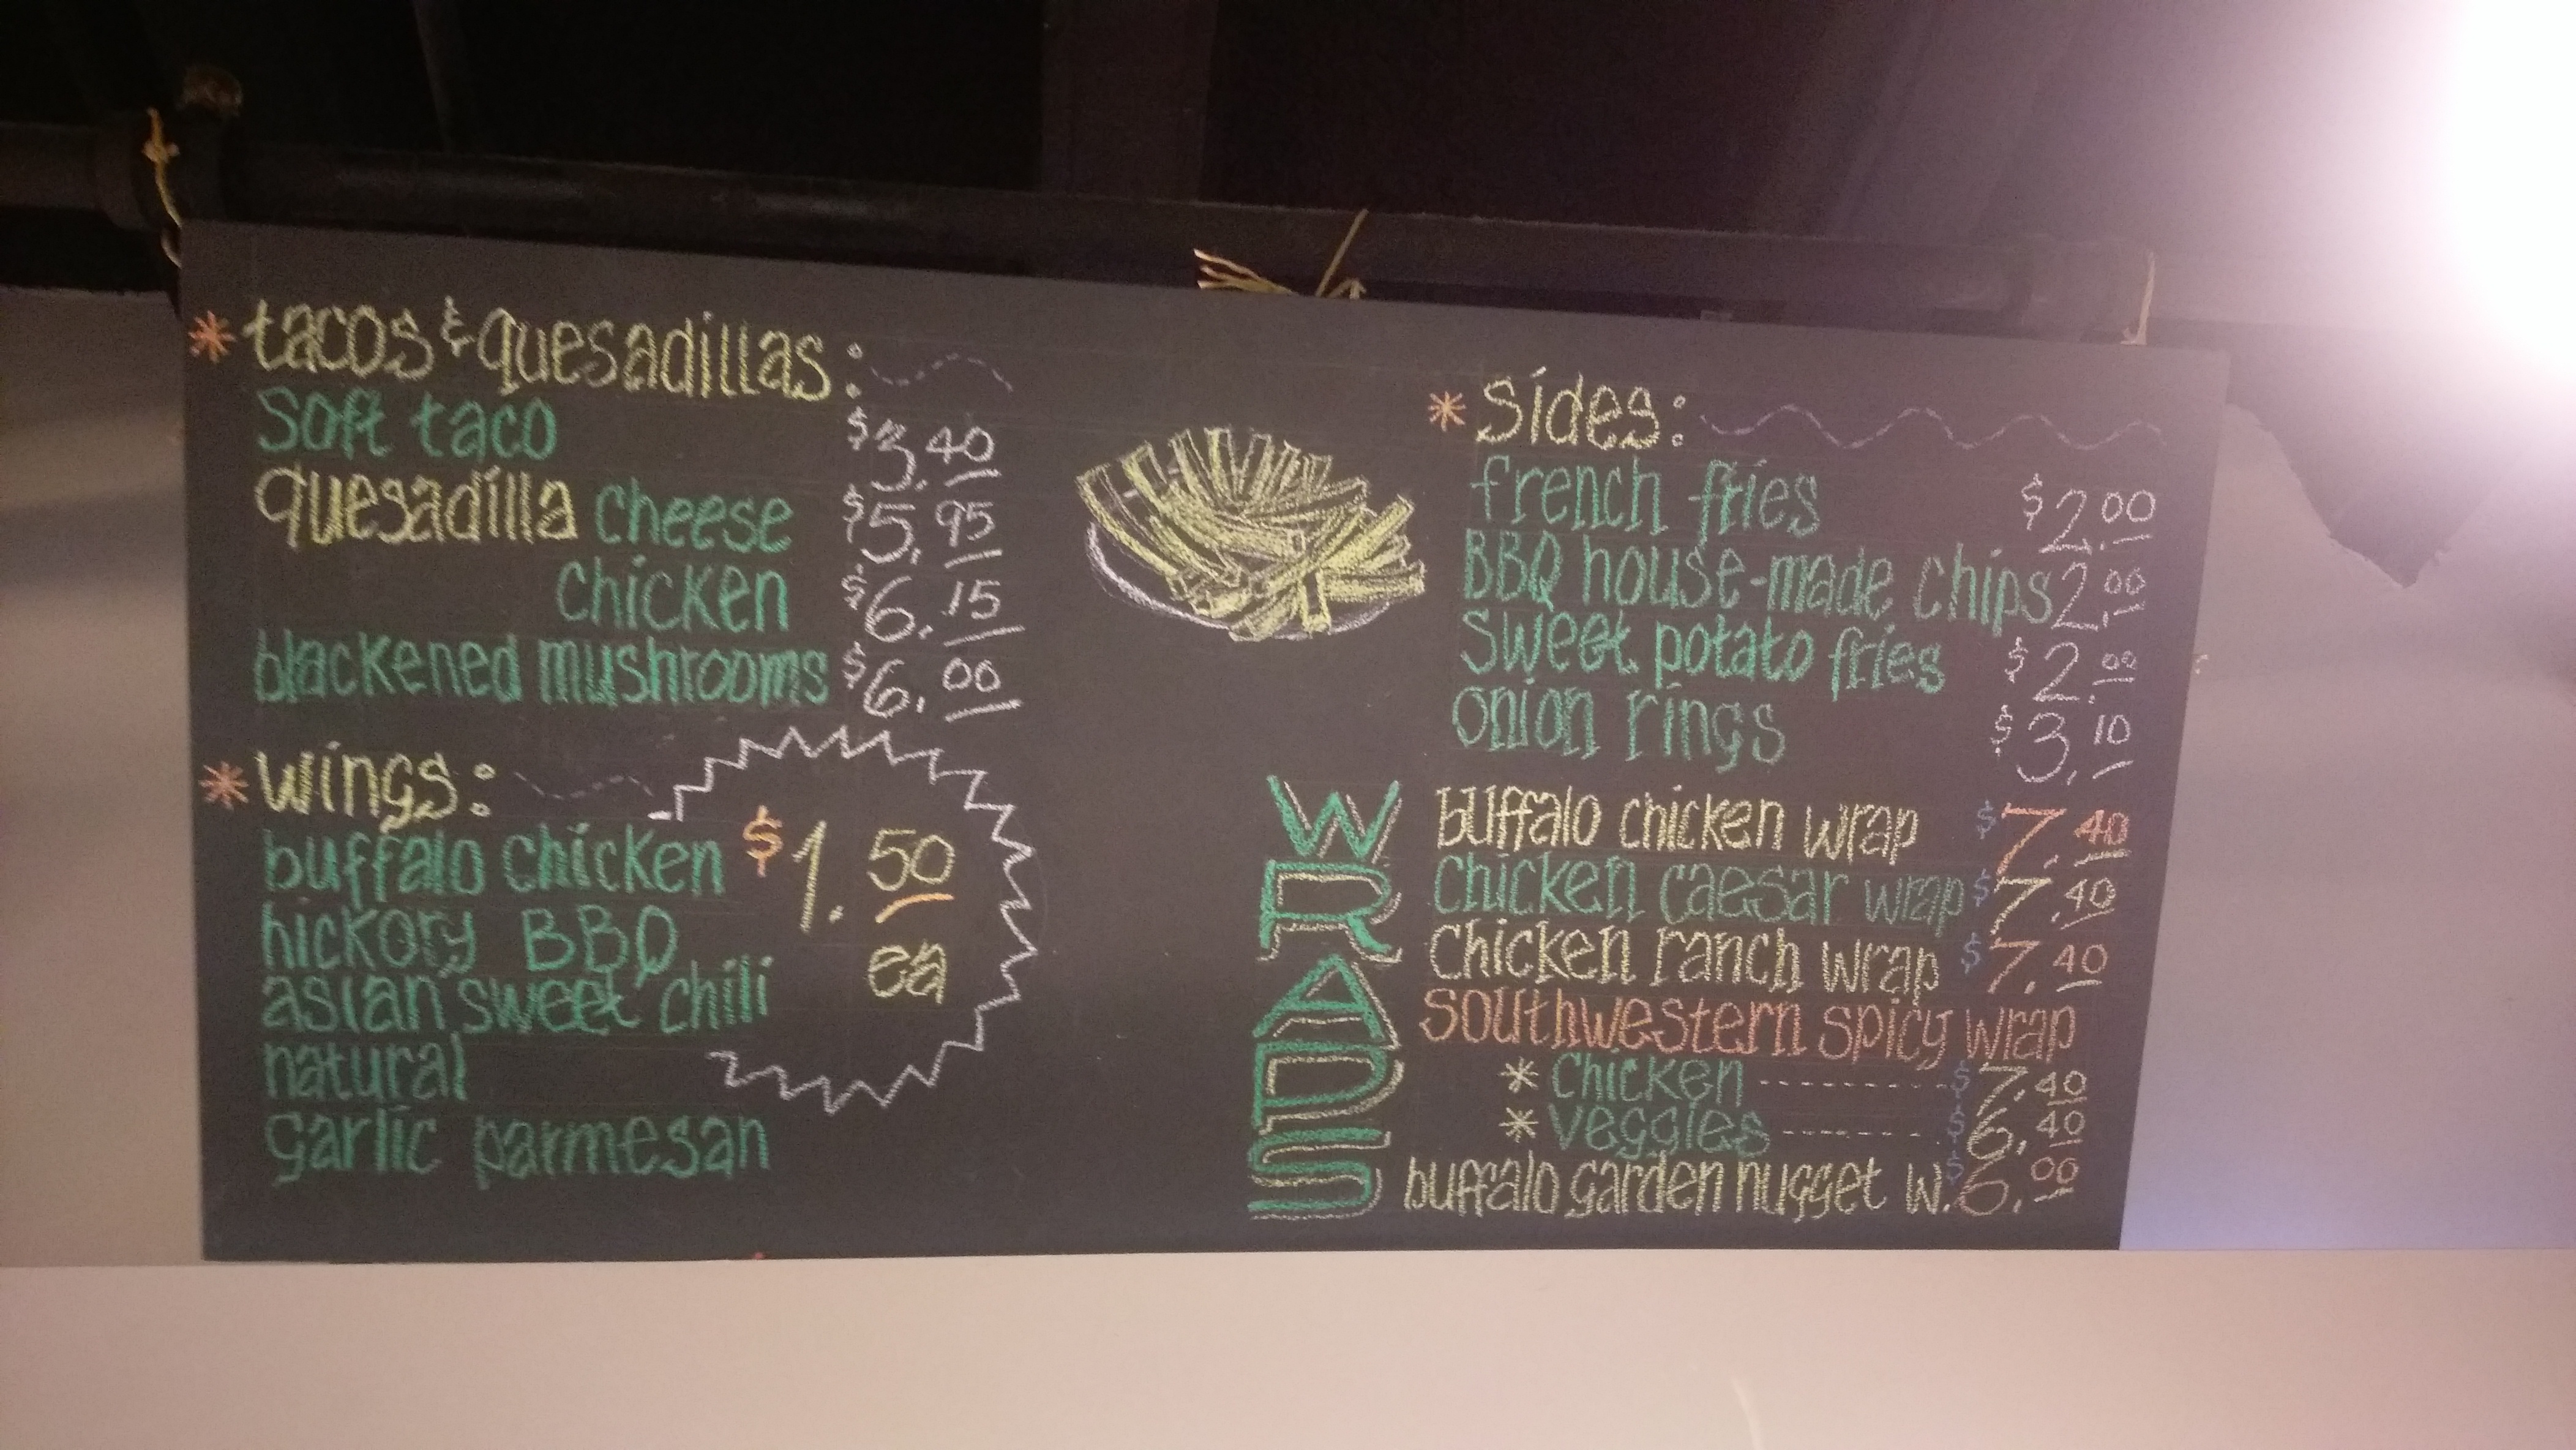 * tacos & quesadillas:
Soft taco $3.40
quesadilla cheese $5.95
chicken $6.15
blackened mushrooms $6.00
* wings:
buffalo chicken $1.50
ea
hickory BBQ
asian sweet chili
natural
garlic parmesan
* Sides:
french fries $2.00
BBQ house-made chips 2.00
Sweet potato fries $2.00
onion rings $3.10
WRAPS
buffalo chicken wrap $7.40
Chicken caesar wrap $7.40
Chicken ranch wrap $7.40
Southwestern spicy wrap
* Chicken --------- $7.40
* veggies ------- $6.40
buffalo garden nugget w. $6.00